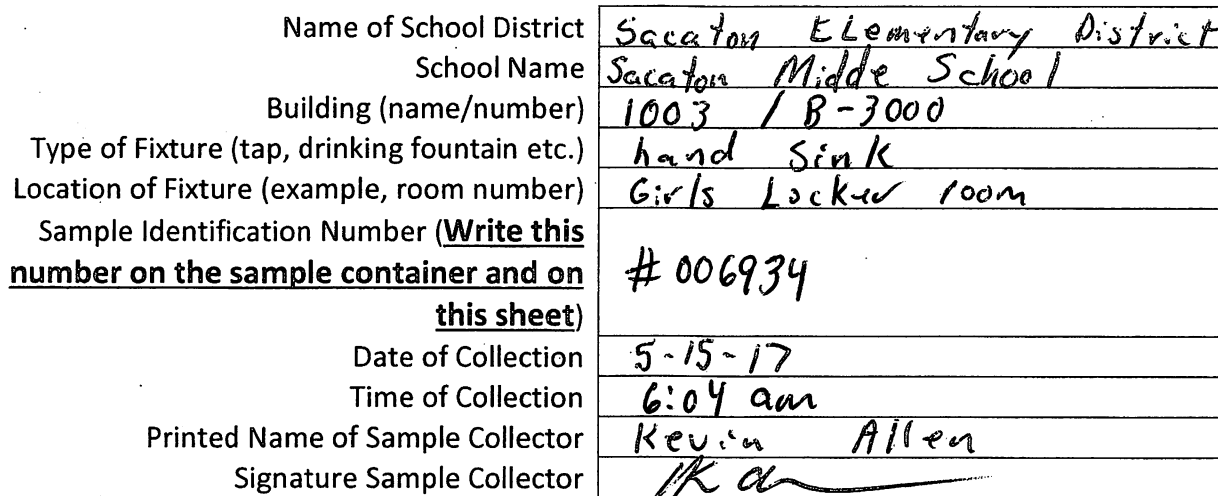 Name of School District Sacaton Elementary District
School Name Sacaton Midde School
Building (name/number) 1003 / B-3000
Type of Fixture (tap, drinking fountain etc.) hand Sink
Location of Fixture (example, room number) Girls Locker room
Sample Identification Number (Write this
number on the sample container and on # 006934
this sheet)
Date of Collection 5-15-17
Time of Collection 6:04 am
Printed Name of Sample Collector Kevin Allen
Signature Sample Collector